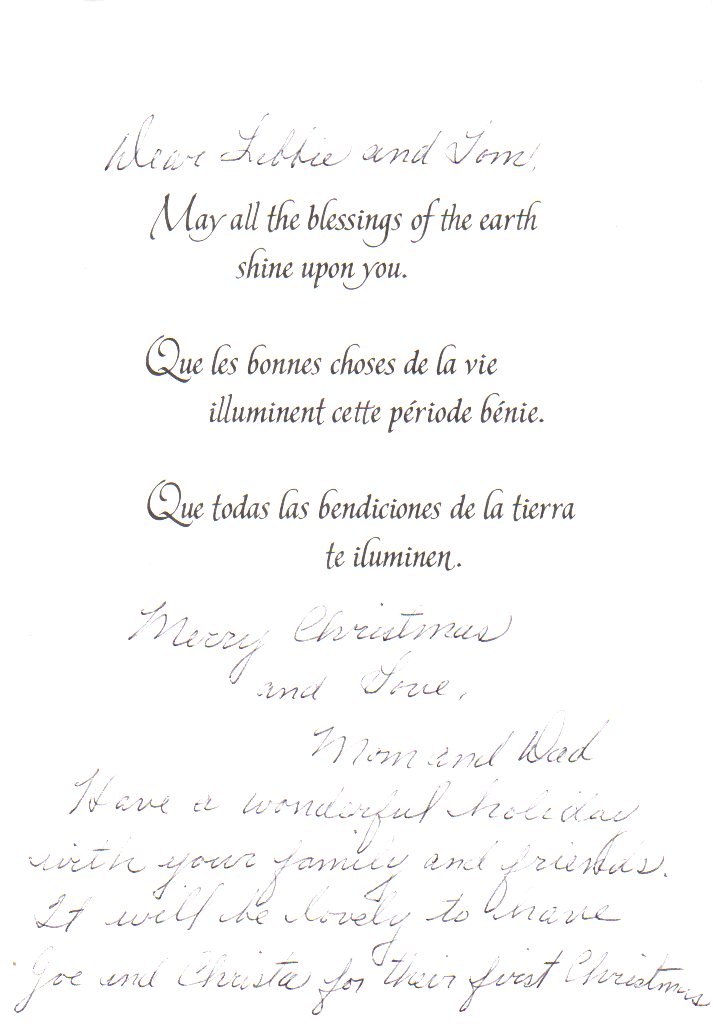 Dear Libbie and Tom,
May all the blessings of the earth
shine upon you.
Que les bonnes choses de la vie
illuminent cette période bénie.
Que todas las bendiciones de la tierra
te iluminen.
Merry Christmas
and Love,
Mom and Dad
Have a wonderful holiday
with your family and friends.
It will be lovely to have
Joe and Christa for their first Christmas